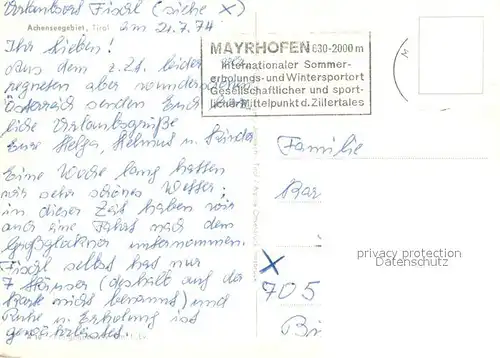 Urlaubsort Fischl (siehe X)
Achenseegebiet, Tirol am 21.7.74
Ihr Lieben!
Aus dem z.Zt. leider ver-
regneten aber wunderschönen
Österreich senden Euch herz-
liche Urlaubsgrüße
Eure Helga, Helmut u. Kinder
Eine Woche lang hatten
wir sehr schönes Wetter;
in dieser Zeit haben wir
auch eine Fahrt nach dem
Großglockner unternommen.
Fischl selbst hat nur
7 Häuser (deshalb auf der
Karte nicht benannt) und
Ruhe u. Erholung ist
gewährleistet.
MAYRHOFEN 630-2000 m
Internationaler Sommer-
erholungs- und Wintersportort
Gesellschaftlicher und sport-
licher Mittelpunkt d. Zillertales
Familie
Bar
X
705
Bi
privacy protection
Datenschutz